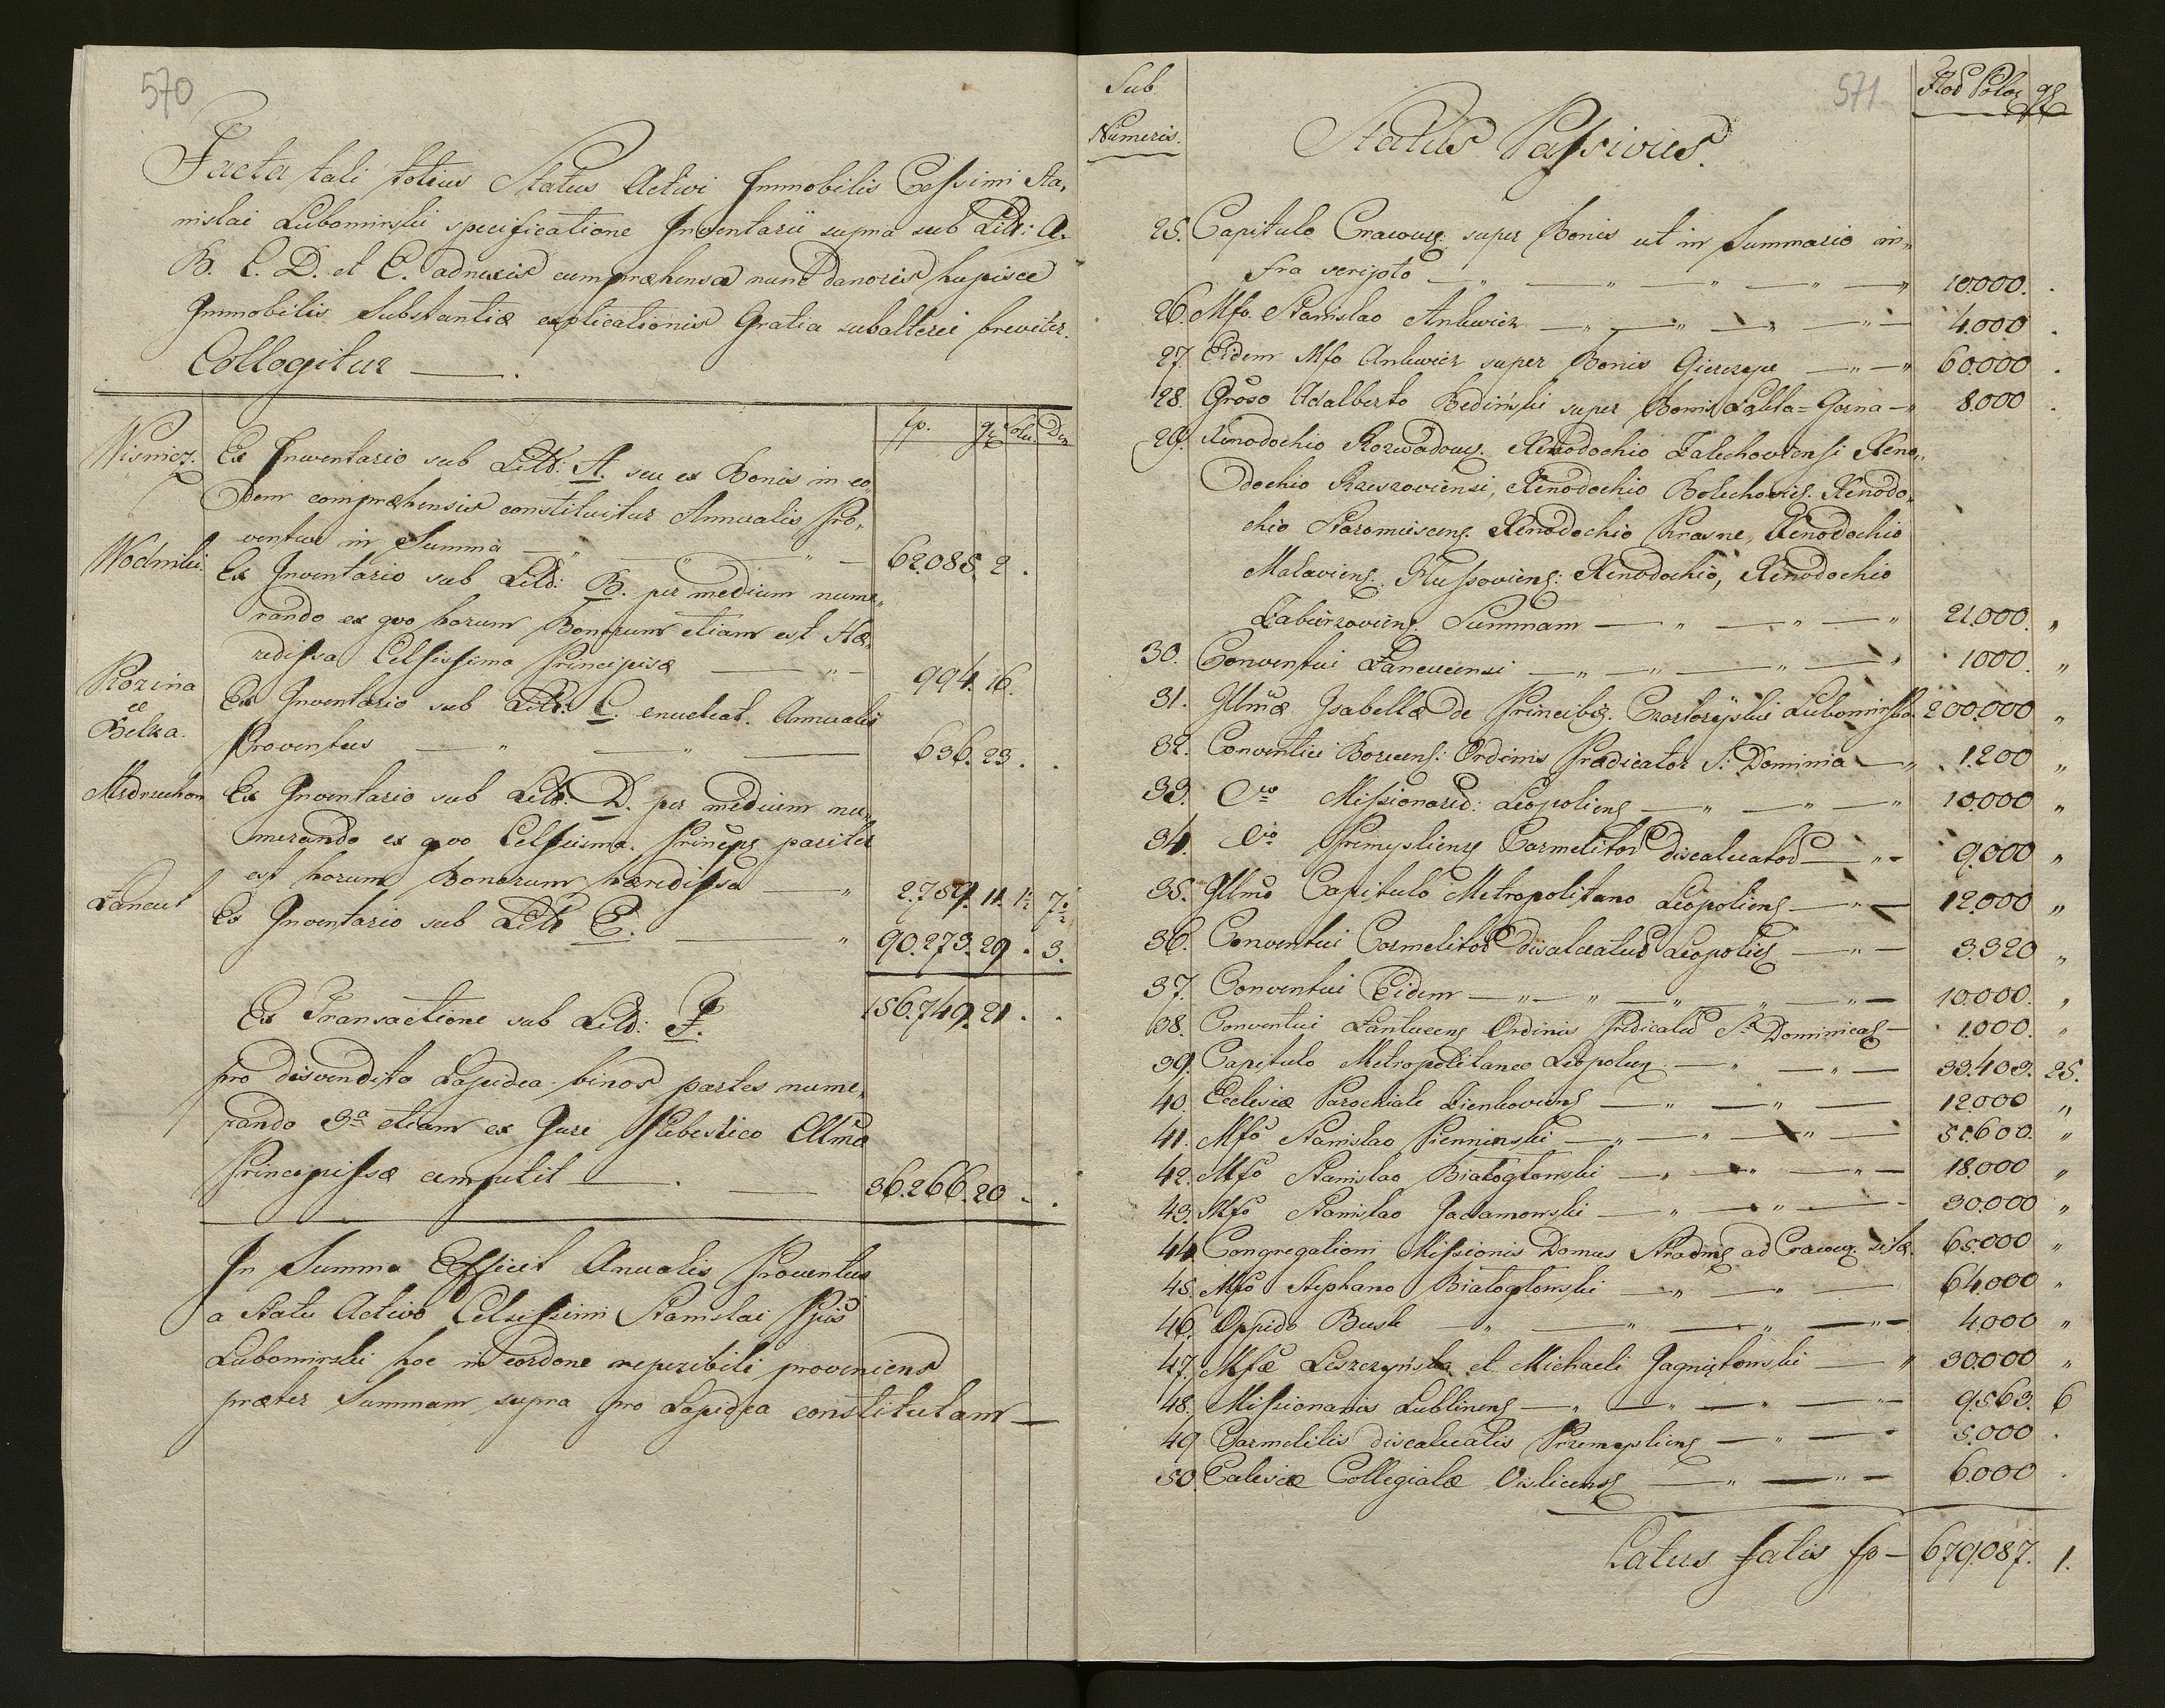 570
Facta tali totius Status Activi Immobilis Celssimi Sta,
nislai Lubomirski specificatione Inventarii supra sub Litt: A.
B. C. D. et E. adnexis compræhensa nunc
Immobilis Substantiæ explicationis Gratia subalterei breviter.
Collogitur — .
fp. gr Den
Wisnicz. Ex Inventario sub Litt: A. seu ex Bonis in eo,,
dem compræhensis constituitur Annualis Pro,,
ventus in Summa — 62.085. 2 .
Ex Inventario sub Litt: B. per medium nume,,
rando ex quo horum Bonorum etiam est Hæ,,
redissa Celsissima Principissa — 994. 16.
Rozina
et
Belza.
Ex Inventario sub Litt: C. enucleat. Annualis
Proventus — 636. 23 . .
Ex Inventario sub Litt: D. per medium nu,,
merando ex quo Celsissima Princeps pariter
est horum Bonorum hæredissa — 2.759. 11. 1½ 7½
Łancut Ex Inventario sub Litt E. — 90.273. 29 . 3.
156.749. 21 . .
Ex Transactione sub Litt: F.
pro disvendita Lapidea binos partes nume,,
rando 3ª etiam ex Jure Plebestico Cllma
Principissæ competit — 36.266. 20 - .
In Summa Efficit Anualis Proventus
a Statu Activo Celsissimi Stanislai Ppis
Lubomirski hoc in cordone reperibili proveniens
præter Summam supra pro Lapidea constitutam —
571
Sub
Numeris.
Flor Polon gr
Status Passivus.
25. Capitulo Cracov. super Bonis ut in Summario in,,
fra scripto — 10.000. .
26. Mfo. Stanislao Ankwicz — 4.000 .
27. Eidem Mfo Ankwicz super Bonis Gierczyce — 60.000 .
28. Groso Adalberto Bediński super Bonis Łąkta=Gorna — 8.000 .
29. Xenodochio Rozwadow. Xenodochio Zalechoviensi Xeno,,
dochio Rzeszoviensi, Xenodochio Bolechovien. Xenodo,,
chio Staromiescens. Xenodochio Krasne, Xenodochio
Malaviens. Hussoviens: Xenodochio, Xenodochio
Zaburzoviens. Summam — 21.000. ,,
30. Conventui Łancucensi — 1000. ,,
31. Illmæ Isabellæ de Princibus. Czartoryskie Lubomirska 200.000 ,,
32. Conventui Borecens: Ordinis Prædicator S: Dominica — 1.200 ,,
33. Do Missionarior: Leopoliens — 10.000 ,,
34. Do Premysliens Carmelitor discalceator — 9.000 ,,
35. Illmo Capitulo Metropolitano Leopoliens — 12.000 ,,
36. Conventui Carmelitor discalceator Leopolien — 3.320 ,,
37. Conventui Eidem — 10.000. ,,
38. Conventui Łancucens Ordinis Predicator Sti Dominica — 1.000. ,,
39. Capitulo Metropolitanoo Leopolien — 33.403. 25.
40. Ecclesiæ Parochiale Zienkoviens — 12.000 ,,
41. Mfo Stanislao Pienninski — 51.600. ,,
42. Mfo Stanislao Białogłowski — 18.000 ,,
43. Mfo Stanislao — 30.000 ,,
44. Congregationi Missionis Domus Stradom ad Cracov. sitæ. 65.000 ,,
45. Mfo Stephano Białogłowski — 64.000 ,,
46. Oppido Busk — 4.000 ,,
47. Mfæ Leszczyńska et Michaeli Jagniątowski — 30.000 ,,
48. Missionariis Lublinens — 9.563. 6
49. Carmelitis discalceatis Przemysliens — 5.000 .
50. Eclesiæ Collegialæ Visliciens — 6.000 .
Latus fatis fp — 679.087. 1.